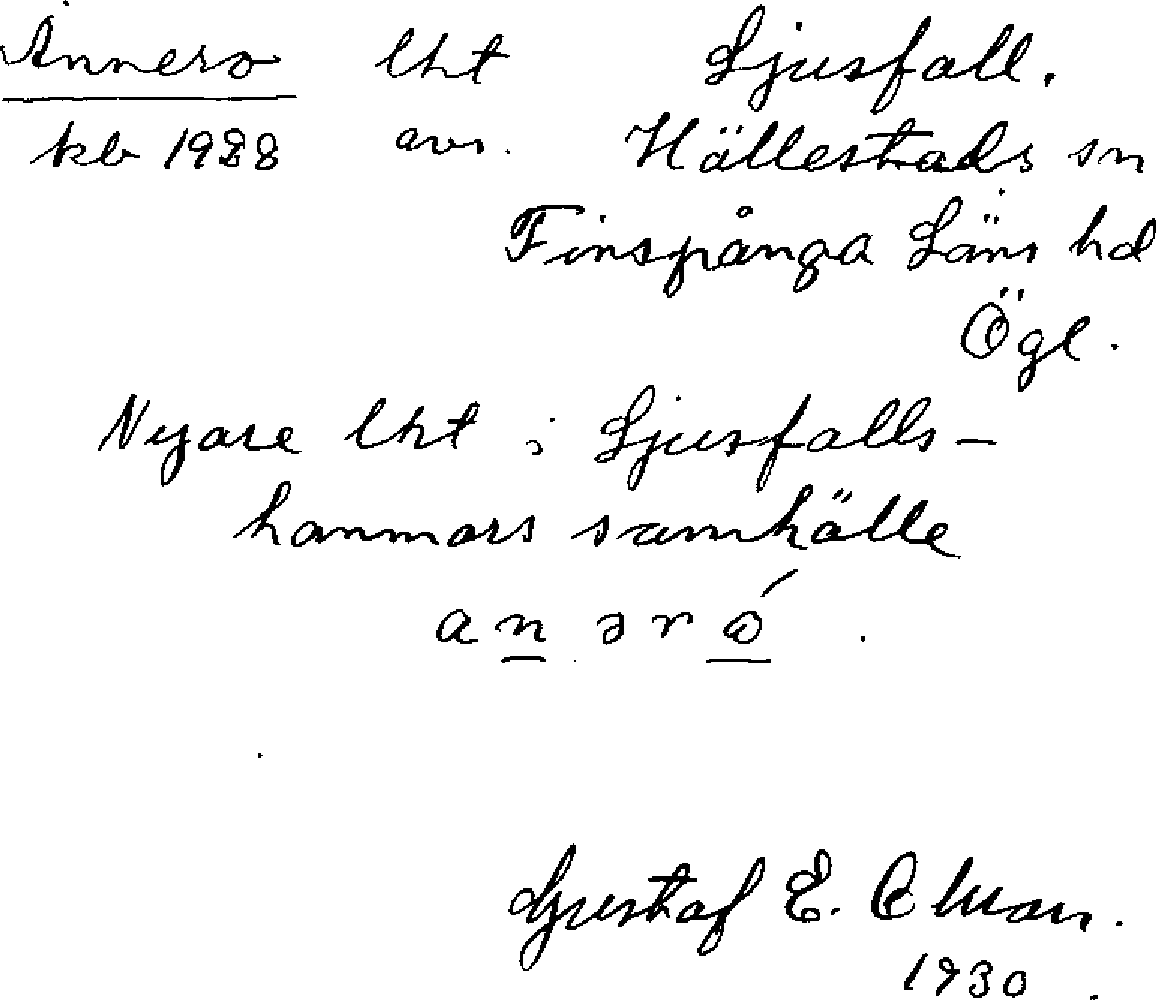 Annero lht Ljusfall.
kb 1928 avs. Hällestads sn
Finspånga Läns hd
Ögl.
Nyare lht i Ljusfalls-
hammars samhälle
a n ə r ó .
Gustaf E.
1930.